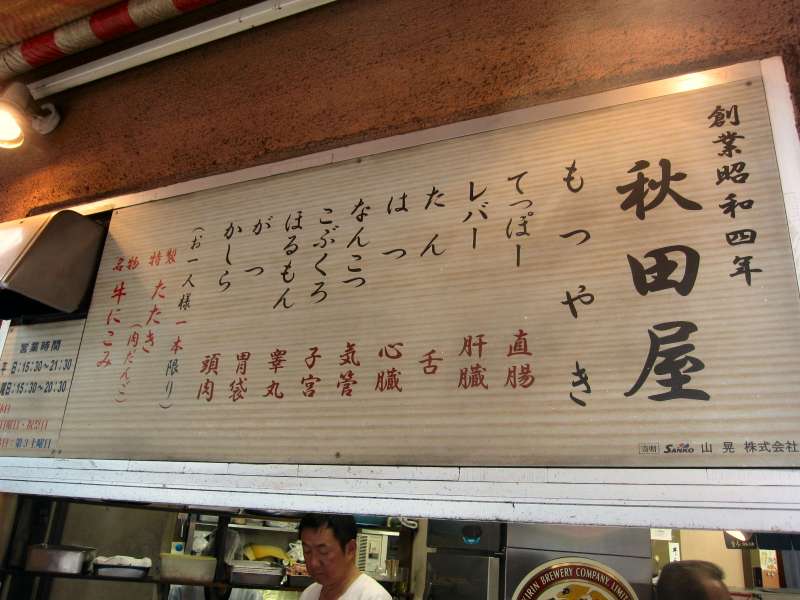 創業昭和四年
秋田屋
もつやき
てっぽー 直腸
レバー 肝臓
たん 舌
はつ 心臓
なんこつ 気管
こぶくろ 子宮
ほるもん 睾丸
がつ 胃袋
かしら 頭肉
(お一人様一本限り)
特製 たたき(肉だんご)
名物 牛にこみ
営業時間
平 日:15:30~21:30
曜日:15:30~20:30
日曜日・祝祭日
日:第3土曜日
SANKO 山 晃 株式会社
KIRIN BREWERY COMPANY, LIMITED